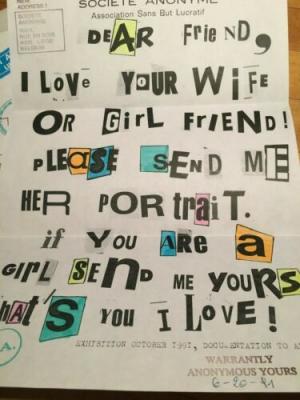 ADDRESS!
SOCIETE ANONYME
Association Sans But Lucratif
DEAR FrieND,
I LOVE YOUR WiFE
OR GirL FriEND!
PLEaSE SEND ME
HER PORtraiT.
if YOU ARe a
GIRL SEnD ME YOURS
hAt'S YOU I LOVE!
A.
EXHIBITION OCTOBER 1991, DOCUMENTATION TO A
WARRANTLY
ANONYMOUS YOURS
6-20-91